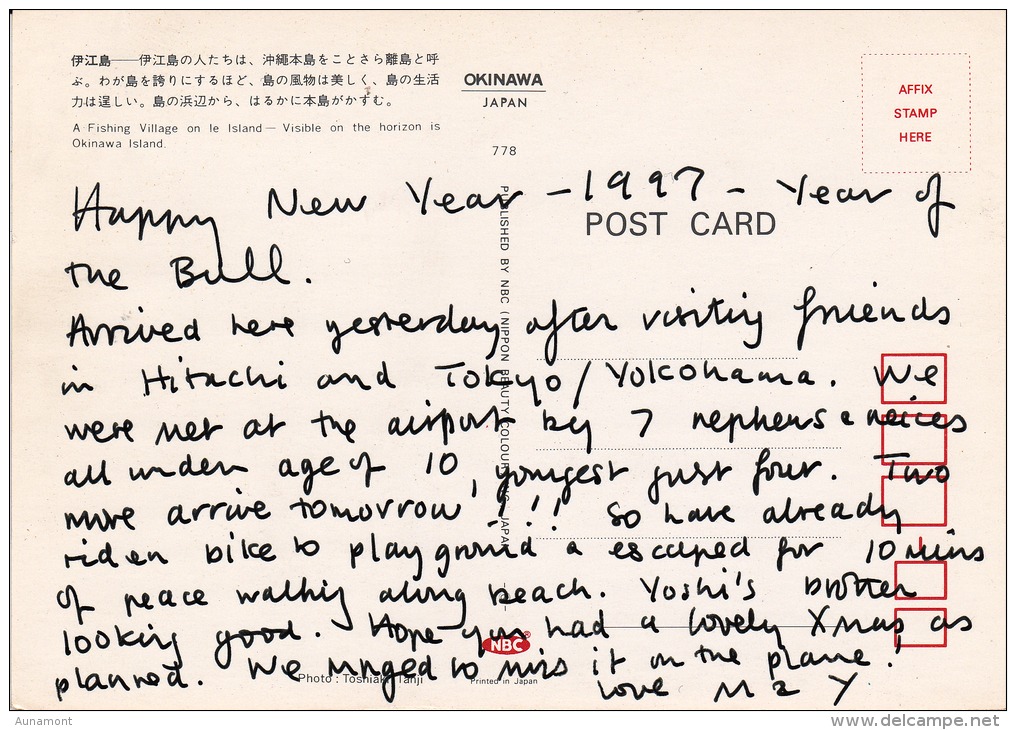 伊江島――伊江島の人たちは、沖縄本島をことさら離島と呼
ぶ。わが島を誇りにするほど、島の風物は美しく、島の生活
力は逞しい。島の浜辺から、はるかに本島がかすむ。
A Fishing Village on Ie Island — Visible on the horizon is
Okinawa Island.
OKINAWA
JAPAN
778
AFFIX
STAMP
HERE
POST CARD
PUBLISHED BY NBC (NIPPON BEAUTY COLOUR JAPAN
Happy New Year - 1997 - Year of
the Bull.
Arrived here yesterday after visiting friends
in Hitachi and Tokyo / Yokohama. We
were met at the airport by 7 nephews & neices
all under age of 10, youngest just four. Two
more arrive tomorrow !!! So have already
riden bike to playground & escaped for 10 mins
of peace walking along beach. Yoshi's brother
looking good. Hope you had a lovely Xmas as
planned. We managed to miss it on the plane!
love M & Y
NBC®
Photo : Toshiaki Tanji
Printed in Japan
Aunamont
www.delcampe.net